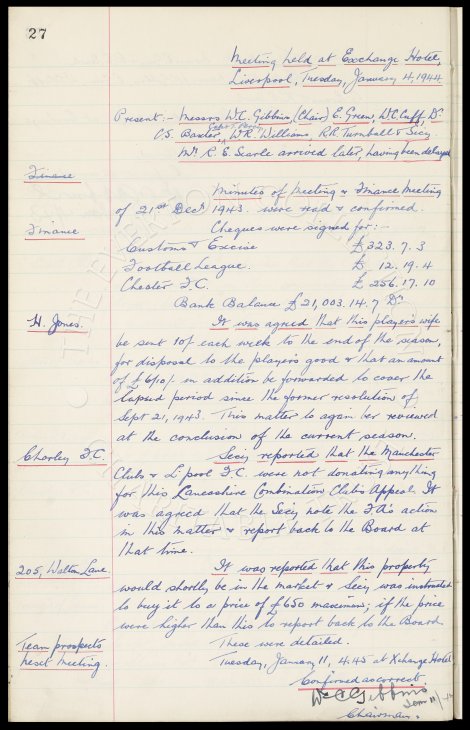 27
Meeting held at Exchange Hotel,
Liverpool, Tuesday, January 4, 1944
Present:- Messrs W.C. Gibbins, (Chair) E. Green, W.C. Cuff, Dr
C.S. Baxter, W.R. Williams, R.R. Turnbull & Secy.
Mr R.E. Searle arrived later, having been delayed
Finance
Minutes of Meeting & Finance Meeting
of 21st Decr 1943. were read & confirmed.
Finance
Cheques were signed for:-
Customs & Excise £323. 7. 3
Football League. £ 12. 19. 4
Chester F.C. £ 256. 17. 10
Bank Balance £21,003. 14. 7 Dr
H. Jones.
It was agreed that this player's wife
be sent 10/- each week to the end of the season,
for disposal to the player's good & that an amount
of £6/10/- in addition be forwarded to cover the
lapsed period since the former resolution of
Sept 21, 1943. This matter to again be reviewed
at the conclusion of the current season.
Chorley F.C.
Secy reported that the Manchester
Clubs & L'pool F.C. were not donating anything
for this Lancashire Combination Clubs Appeal. It
was agreed that the Secy note the F.A's action
in this matter & report back to the Board at
that time.
205, Walton Lane.
It was reported that this property
would shortly be in the market & Secy was instructed
to buy it to a price of £650 maximum; if the price
were higher than this to report back to the Board.
Team prospects
These were detailed.
next meeting.
Tuesday, January 11, 4.45 at Xchange Hotel
Confirmed as correct.
W.C. Gibbins
Chairman.